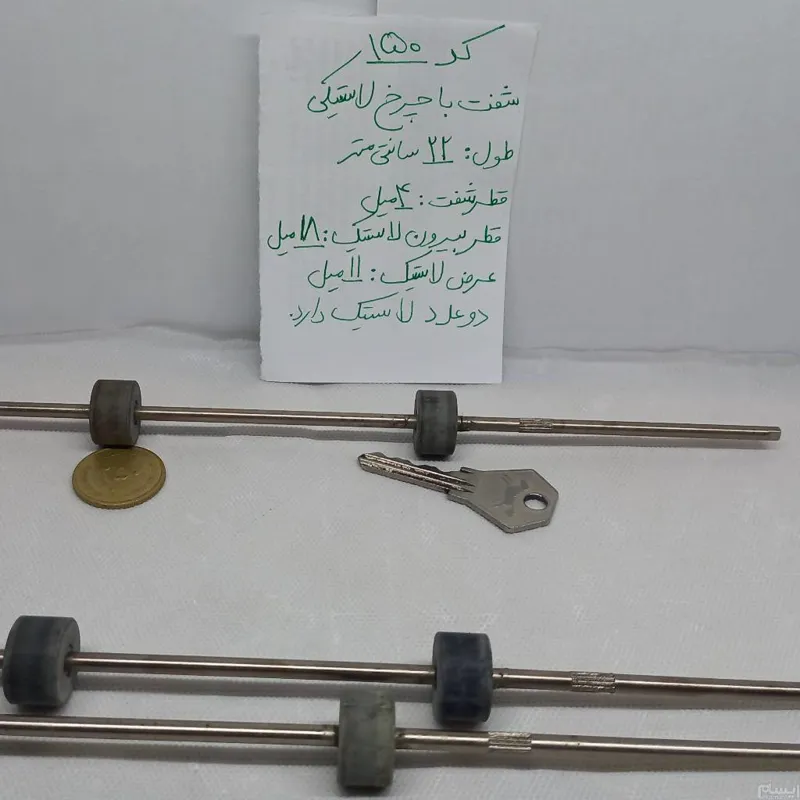 کد ۱۵۰
شفت با چرخ لاستیکی
طول: ۲۲ سانتی متر
قطر شفت: ۴ میل
قطر بیرون لاستیک: ۱۸ میل
عرض لاستیک: ۱۱ میل
دو عدد لاستیک دارد.
ایسام